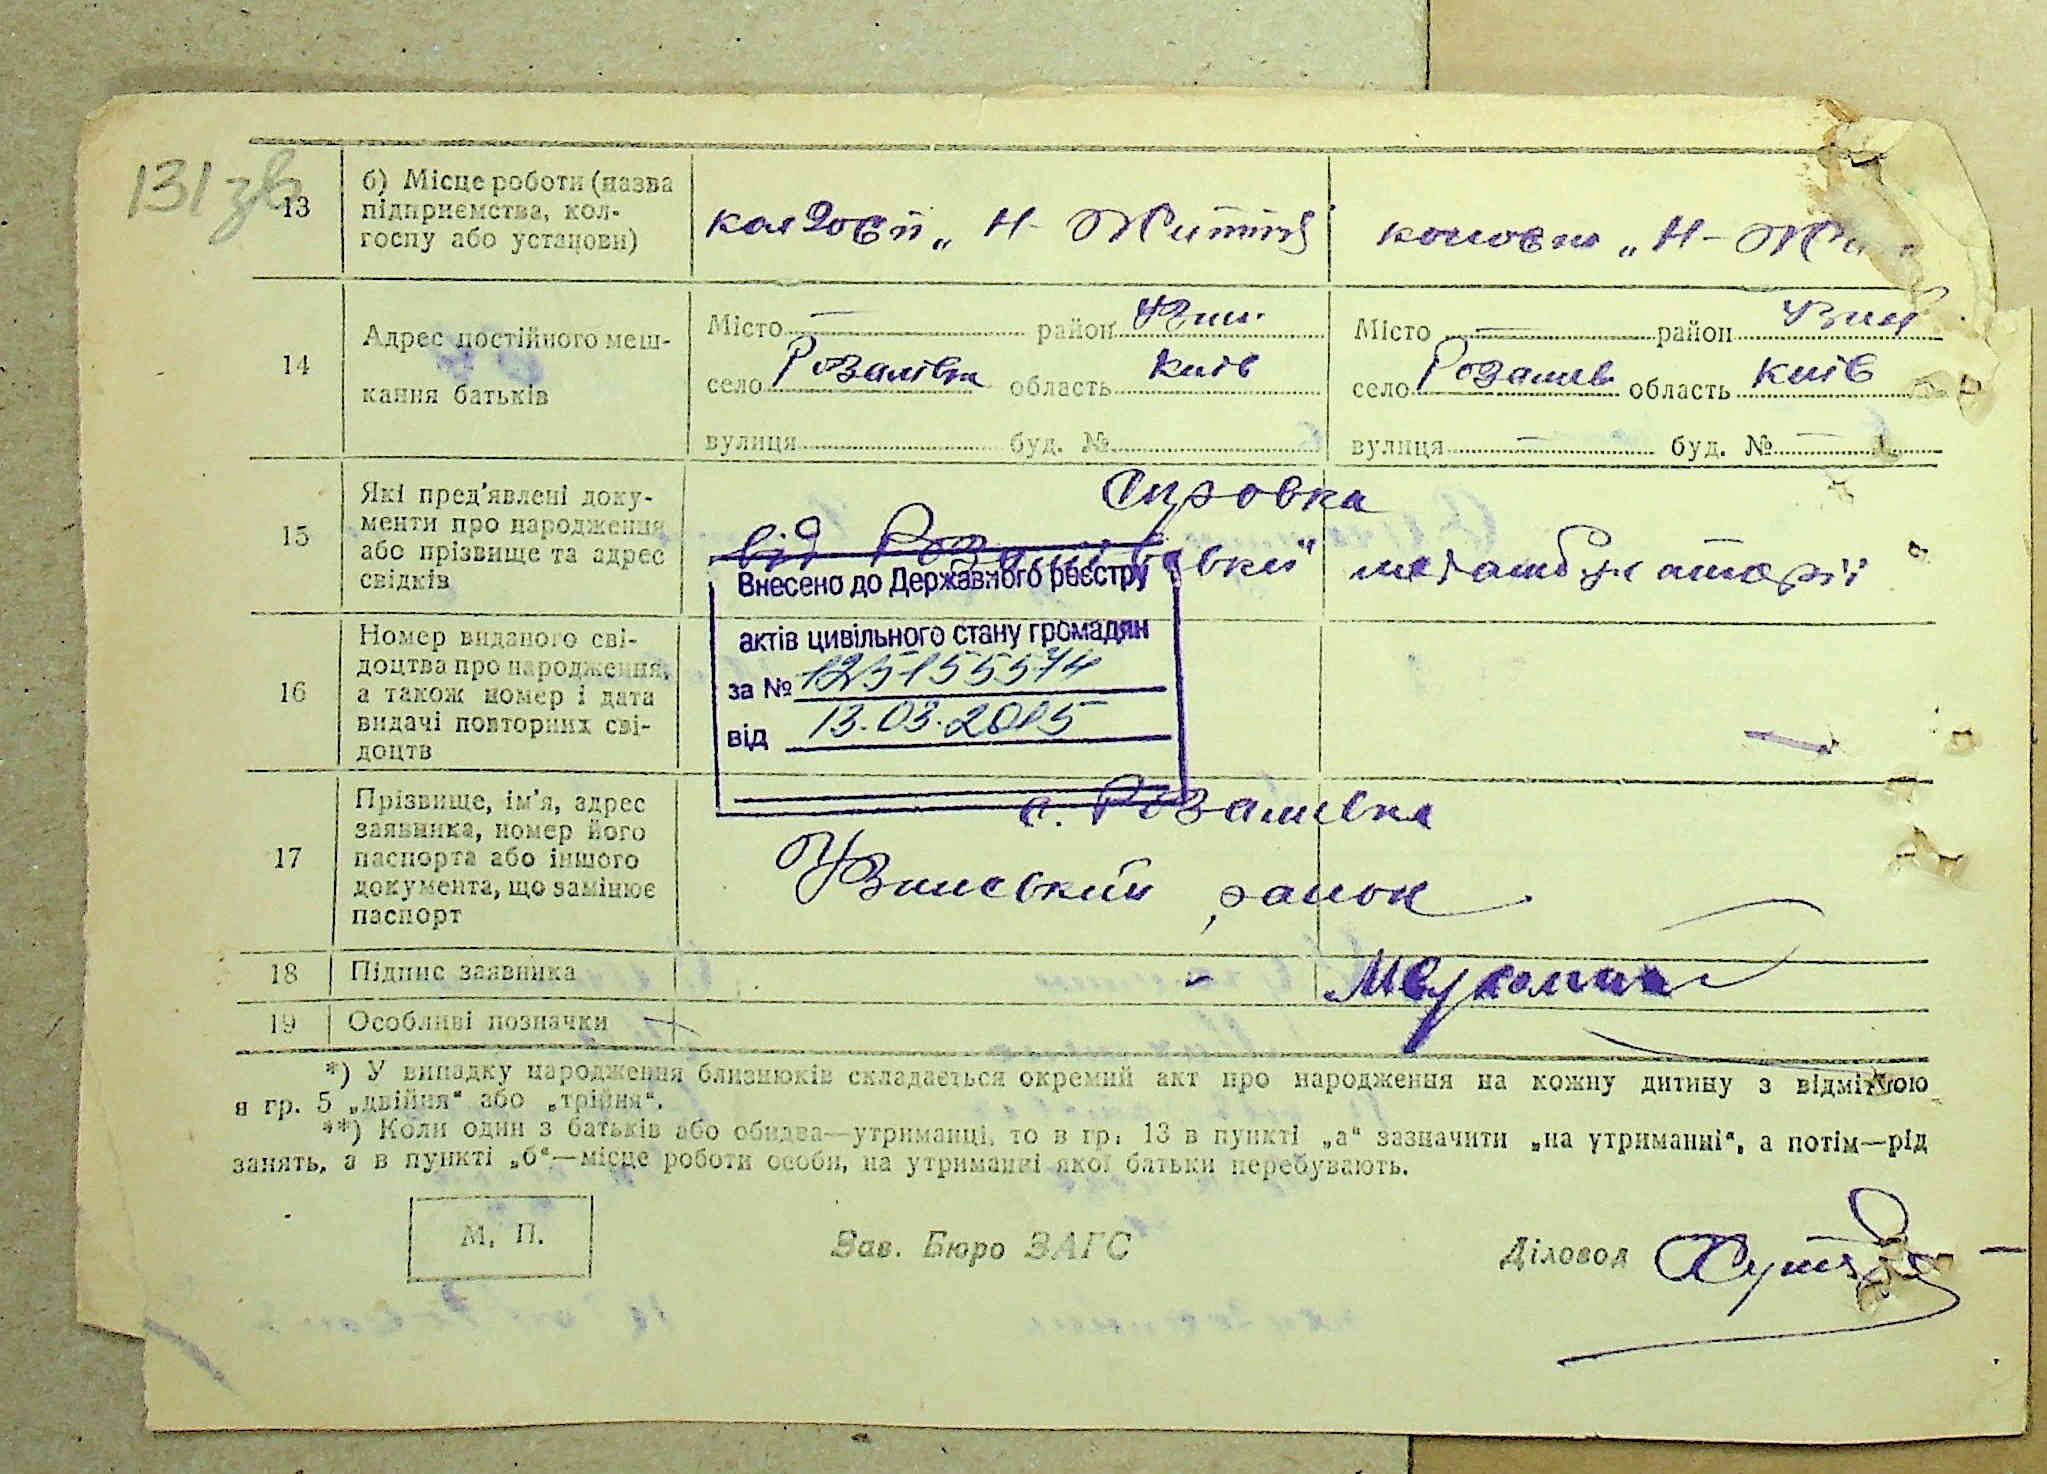 131 зв
13
б) Місце роботи (назва
підприємства, кол-
госпу або установи)
колгосп „Н-Життя
колгосп „Н-Жи
14
Адрес постійного меш-
кання батьків
Місто — район Узин.
село Розалівка область Київ
вулиця буд. №
Місто — район Узин
село Розалів область Київ
вулиця — буд. № —
15
Які пред'явлені доку-
менти про народження
або прізвище та адрес
свідків
Справка
від Розалівськи
16
Номер виданого сві-
доцтва про народження,
а також номер і дата
видачі повторних сві-
доцтв
Внесено до Державного реєстру
актів цивільного стану громадян
за № 125155574
від 13.03.2015
17
Прізвище, ім'я, адрес
заявника, номер його
паспорта або іншого
документа, що замінює
паспорт
с. Розалівка
Узинський район
18
Підпис заявника
19
Особливі позначки
*) У випадку народження близнюків складається окремий акт про народження на кожну дитину з відміткою
в гр. 5 „двійня“ або „трійня“.
**) Коли один з батьків або обидва—утриманці, то в гр. 13 в пункті „а“ зазначити „на утриманні“, а потім—рід
занять, а в пункті „б“—місце роботи особи, на утриманні якої батьки перебувають.
М. П.
Зав. Бюро ЗАГС
Діловод